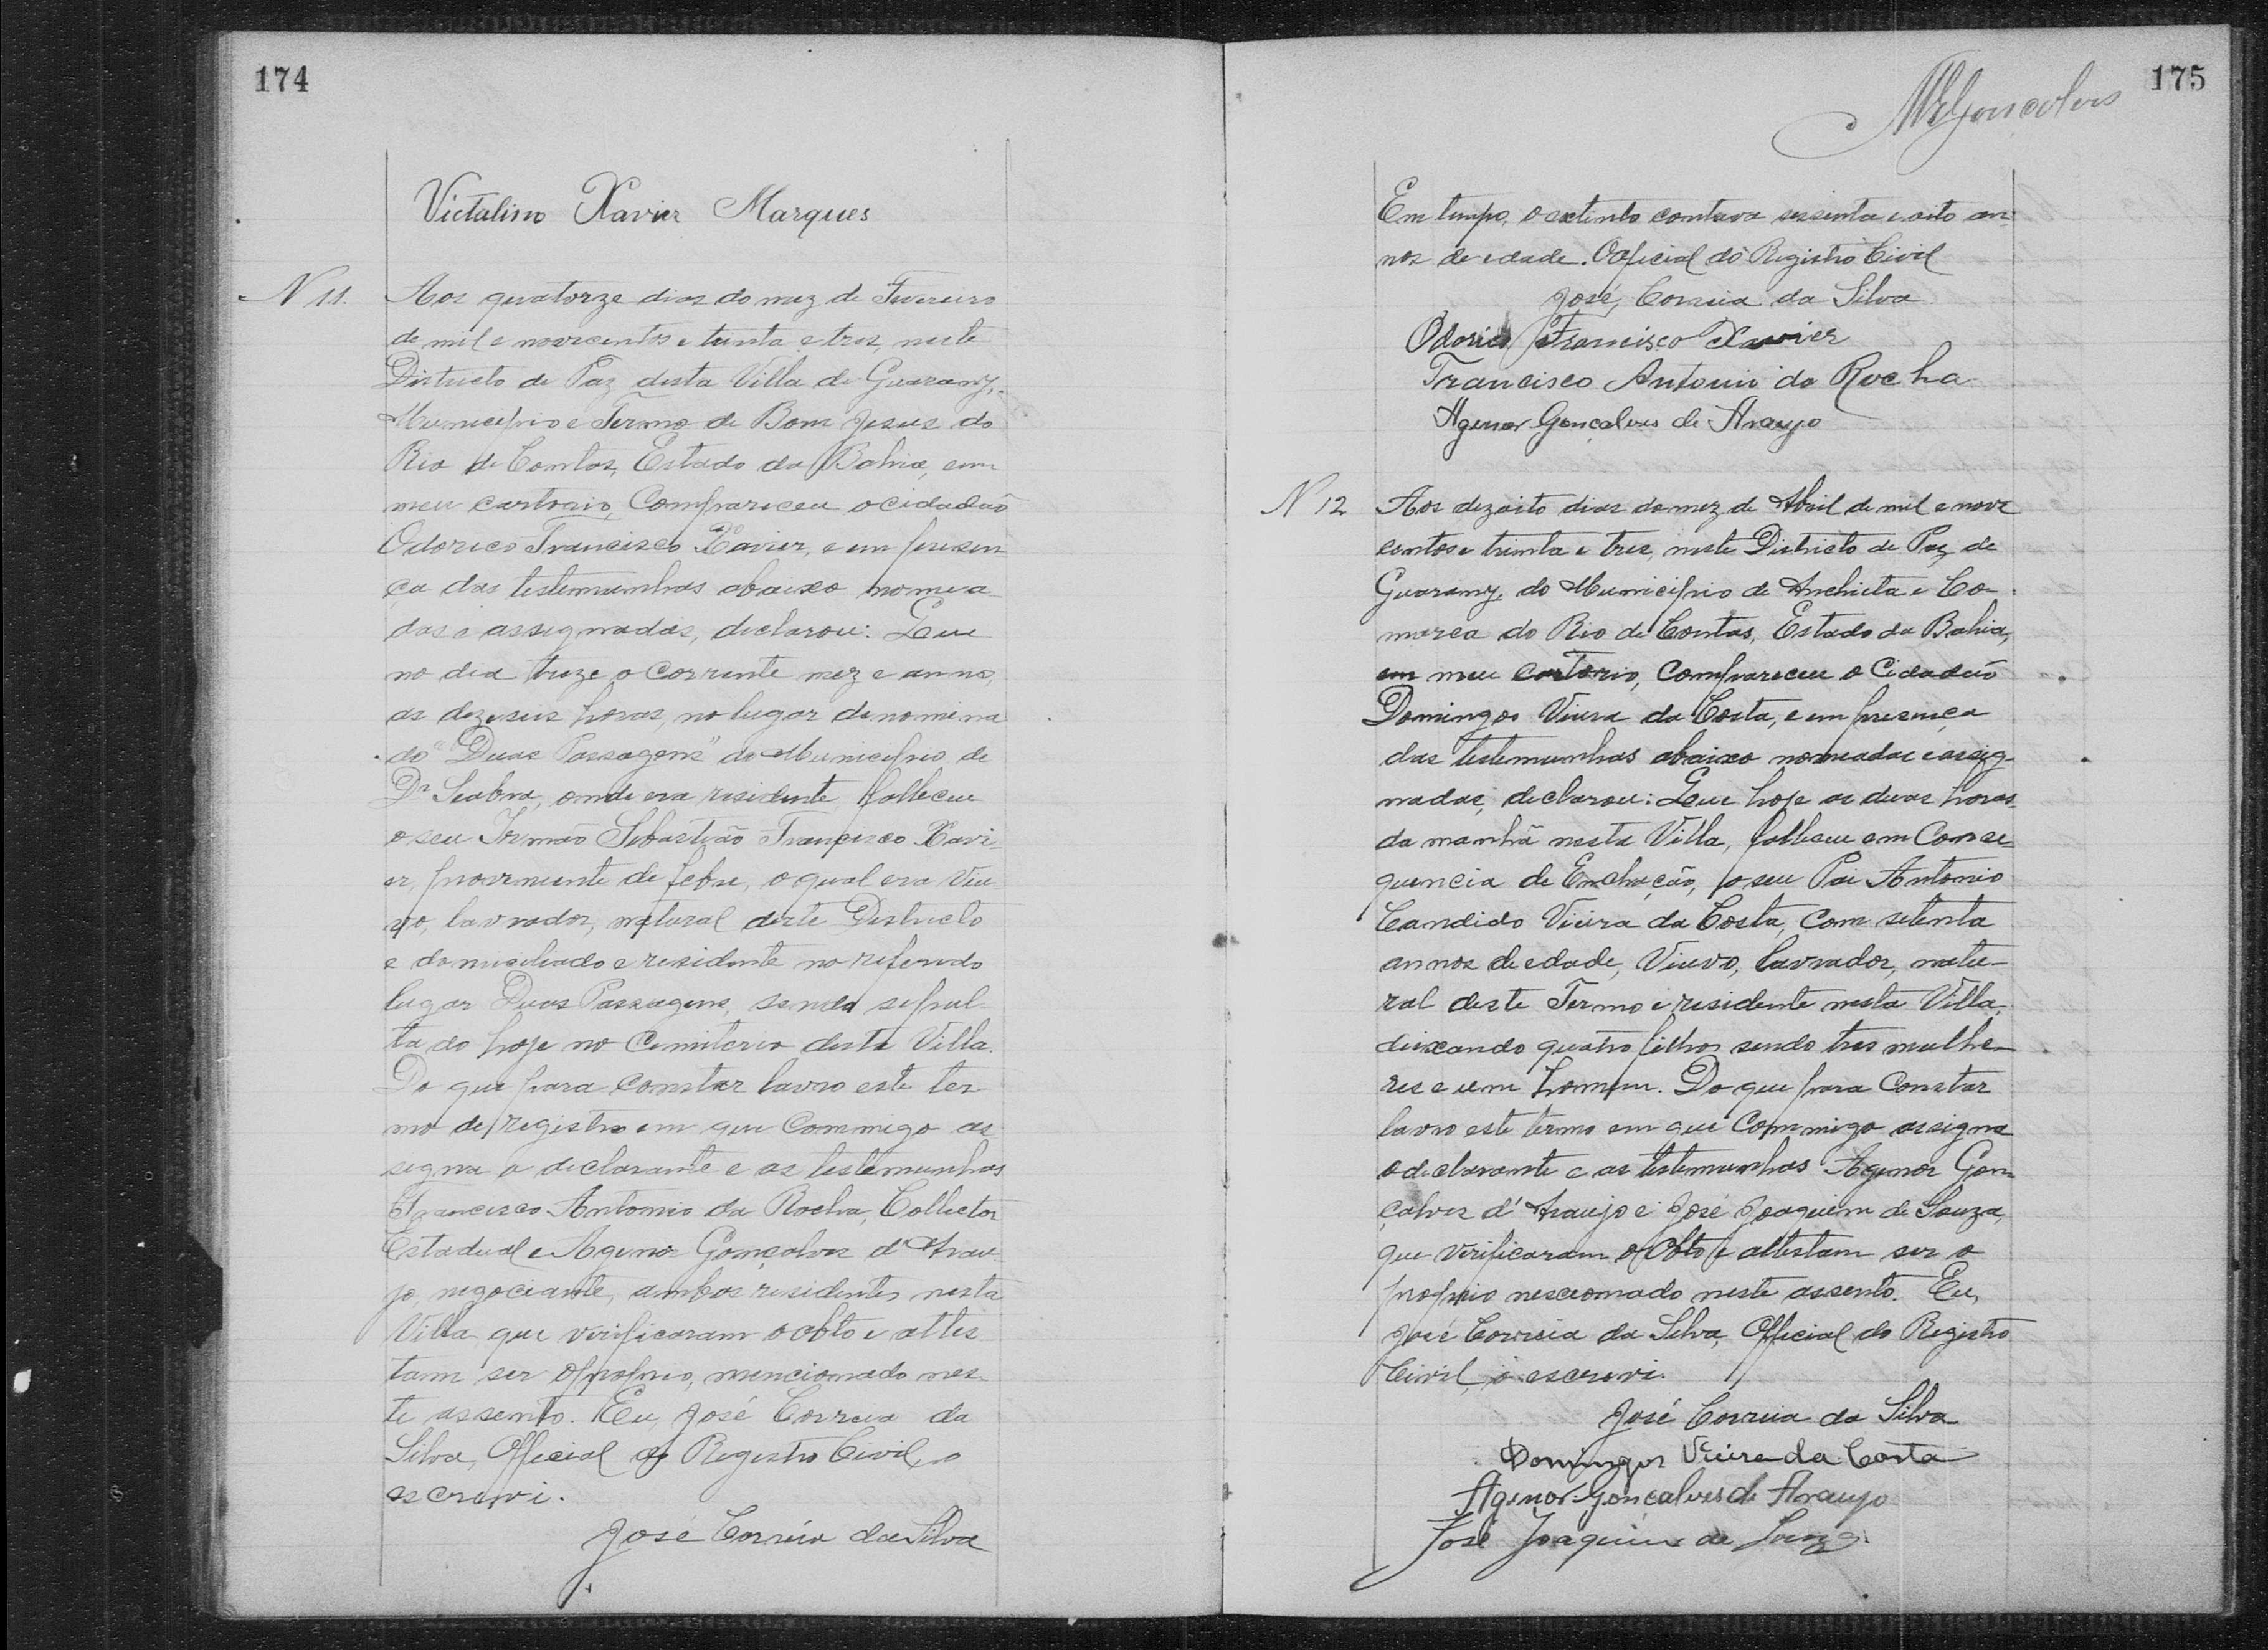 174
Victalino Xavier Marques
N 11. Aos quatorze dias do mez de Fevereiro
de mil e novecentos e trinta e tres, neste
Districto de Paz desta Villa de Guarany,
Municipio e Termo de Bom Jesus do
Rio de Contas, Estado da Bahia, em
meu cartorio, Compareceu o cidadão
Odorico Francisco Xavier, e em presen
ça das testemunhas abaixo nomea
das e assignadas, declarou: Que
no dia treze o corrente mez e anno,
as dezeseis horas, no lugar denomina
do "Duas Passagens" do Municipio de
Dr Seabra, onde era residente, falleceu
o seu Irmão Sebastião Francisco Xavi
er, proveniente de febre, o qual era Viu
vo, lavrador, natural deste Districto
e domiciliado e residente no referido
lugar Duas Passagens, sendo sepul-
tado hoje no Cemiterio desta Villa.
Do que para constar lavro este ter
mo de registro em que Commigo as
signa o declarante e as testemunhas
Francisco Antonio da Rocha, Collector
Estadual e Agenor Gonçalves d'Arau-
jo, negociante, ambos residentes nesta
Villa que verificaram o obto e attes
tam ser o proprio, mencionado nes-
te assento. Eu, José Correia da
Silva, Official do Registro Civil, o
escrevi.
José Correia da Silva
175
Gonçalves
Em tempo, o extinto contava sessenta e oito an-
nos de edade. O Oficial do Registro Civil
José Correia da Silva
Odorico Francisco Xavier
Francisco Antonio da Rocha
Agenor Gonçalves de Araujo
N 12 Aos dezoito dias do mez de Abril de mil e nove
centos e trinta e tres, neste Districto de Paz de
Guarany, do Municipio de Anchieta e Co-
marca do Rio de Contas, Estado da Bahia,
em meu cartorio, Compareceu o Cidadão
Domingos Vieira da Costa, e em presença
das testemunhas abaixo nomeadas e assig-
nadas, declarou: Que hoje as duas horas
da manhã nesta Villa, falleceu em Conse-
quencia de Enchação, o seu Pai Antonio
Candido Vieira da Costa, Com setenta
annos de edade, Viuvo, lavrador, natu-
ral deste Termo e residente nesta Villa,
deixando quatro filhos sendo tres mulhe-
res e um homem. Do que para Constar
lavro este termo em que Commigo assigna
o declarante e as testemunhas Agenor Gon-
çalves d'Araujo e José Joaquim de Souza,
que verificaram o obto e attestam ser o
proprio nescionado neste assento. Eu,
José Correia da Silva, Official do Registro
Civil, o escrevi.
José Correia da Silva
Domingos Vieira da Costa
Agenor Gonçalves de Araujo
José Joaquim de Souza